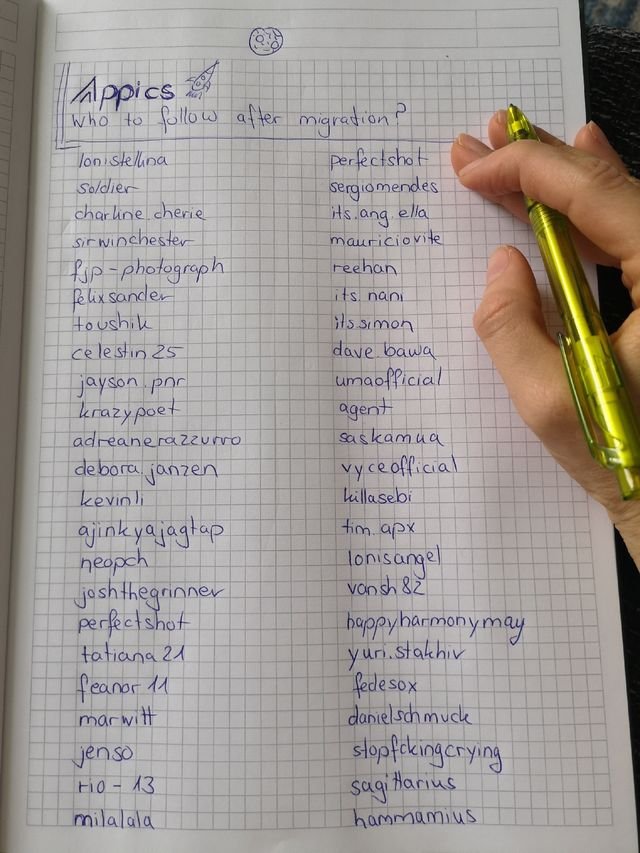 Appics
who to follow after migration?
lonistellina
soldier
charline.cherie
sirwinchester
fjp-photograph
felixsander
toushik
celestin25
jayson.pnr
krazypoet
adreanerazzurro
debora.janzen
kevinli
ajinkyajagtap
neopch
joshthegrinner
perfectshot
tatiana21
feanor11
marwitt
jenso
rio-13
milalala
perfectshot
sergiomendes
its.ang.ella
mauriciovite
reehan
its.nani
itssimon
dave.bawa
umaofficial
agent
saskamua
vyceofficial
killasebi
tim.apx
lonisangel
vansh82
happyharmonymay
yuri.stakhiv
fedesox
danielschmuck
stopfckingcrying
sagittarius
hammamius